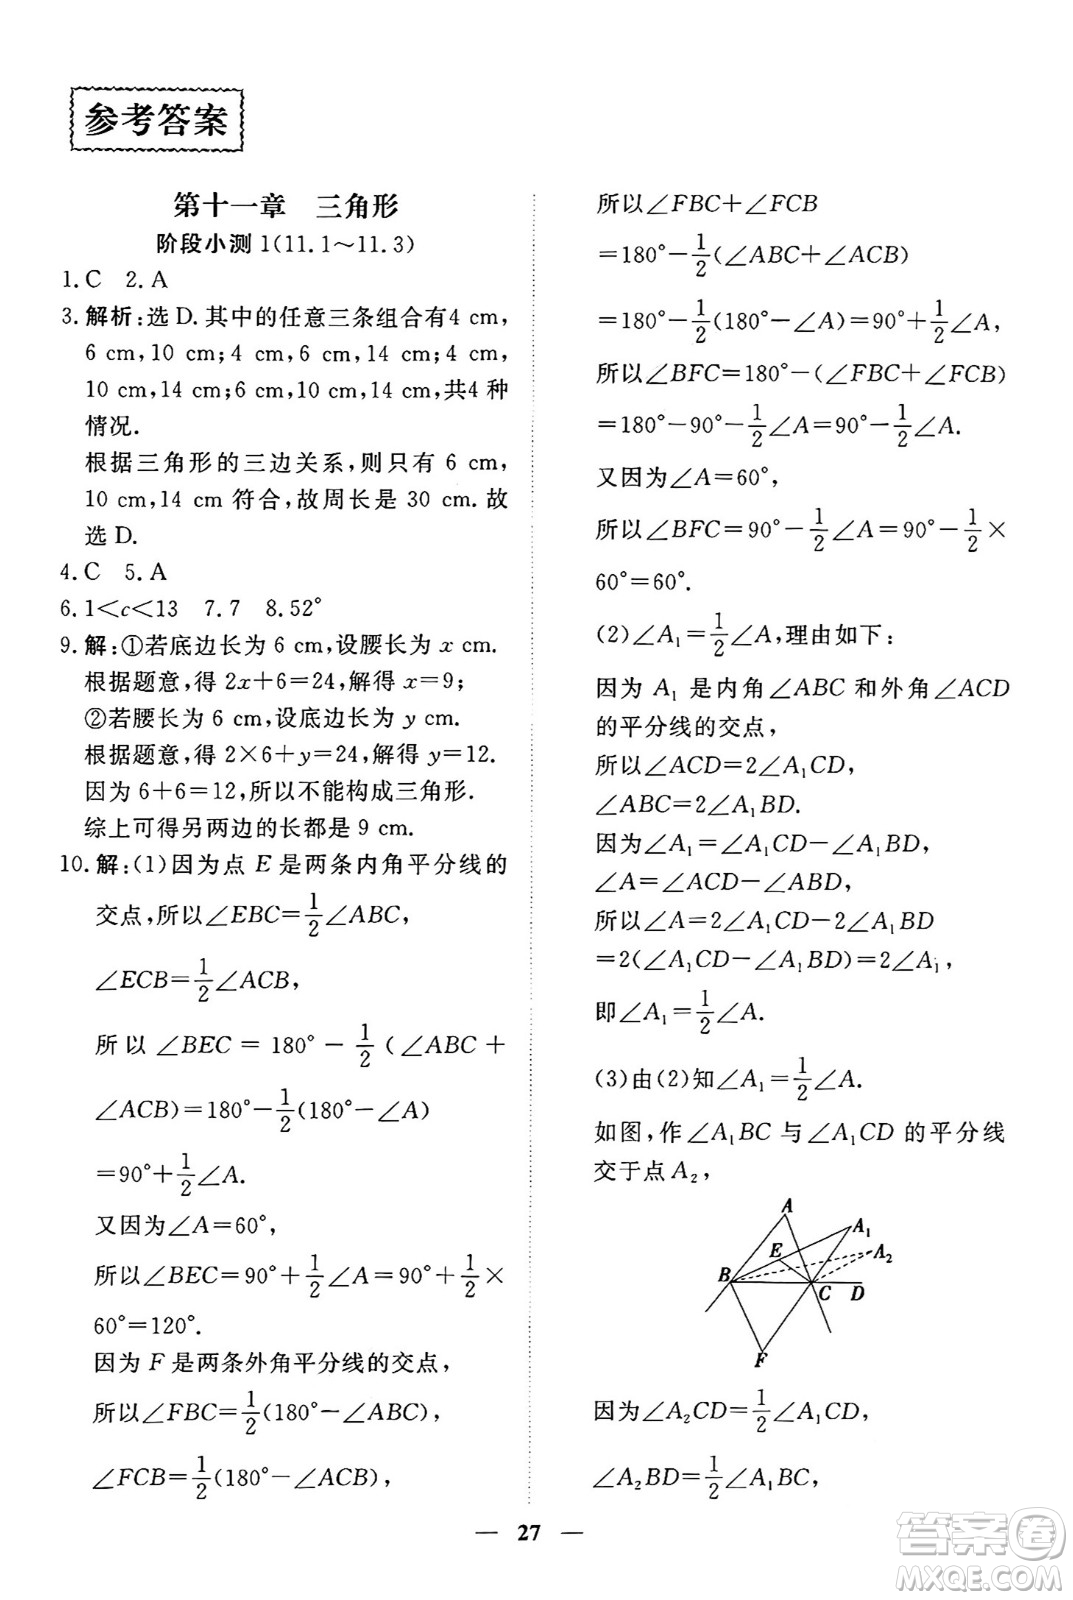 参考答案
第十一章　三角形
阶段小测 1(11.1～11.3)
1.C　2.A
3.解析:选 D.其中的任意三条组合有4 cm,
6 cm,10 cm;4 cm,6 cm,14 cm;4 cm,
10 cm,14 cm;6 cm,10 cm,14 cm,共4 种
情况.
根据三角形的三边关系,则只有 6 cm,
10 cm,14 cm 符合,故周长是 30 cm.故
选 D.
4.C　5.A
6.1<c<13　7.7　8.52°
9.解:①若底边长为 6 cm,设腰长为 x cm.
根据题意,得 2x+6=24,解得 x=9;
②若腰长为 6 cm,设底边长为 y cm.
根据题意,得 2×6+y=24,解得 y=12.
因为 6+6=12,所以不能构成三角形.
综上可得另两边的长都是 9 cm.
10.解:(1)因为点 E 是两条内角平分线的
交点,所以∠EBC=1/2∠ABC,
∠ECB=1/2∠ACB,
所以 ∠BEC = 180° - 1/2 (∠ABC +
∠ACB)=180°-1/2(180°-∠A)
=90°+1/2∠A.
又因为∠A=60°,
所以∠BEC=90°+1/2∠A=90°+1/2×
60°=120°.
因为 F 是两条外角平分线的交点,
所以∠FBC=1/2(180°-∠ABC),
∠FCB=1/2(180°-∠ACB),
所以∠FBC+∠FCB
=180°-1/2(∠ABC+∠ACB)
=180°-1/2(180°-∠A)=90°+1/2∠A,
所以∠BFC=180°-(∠FBC+∠FCB)
=180°-90°-1/2∠A=90°-1/2∠A.
又因为∠A=60°,
所以∠BFC=90°-1/2∠A=90°-1/2×
60°=60°.
(2)∠A₁=1/2∠A,理由如下:
因为 A₁ 是内角∠ABC 和外角∠ACD
的平分线的交点,
所以∠ACD=2∠A₁CD,
∠ABC=2∠A₁BD.
因为∠A₁=∠A₁CD-∠A₁BD,
∠A=∠ACD-∠ABD,
所以∠A=2∠A₁CD-2∠A₁BD
=2(∠A₁CD-∠A₁BD)=2∠A₁,
即∠A₁=1/2∠A.
(3)由(2)知∠A₁=1/2∠A.
如图,作∠A₁BC 与∠A₁CD 的平分线
交于点 A₂,
A
A₁
E
A₂
B
C
D
F
因为∠A₂CD=1/2∠A₁CD,
∠A₂BD=1/2∠A₁BC,
— 27 —
答案卷
MXQE.COM